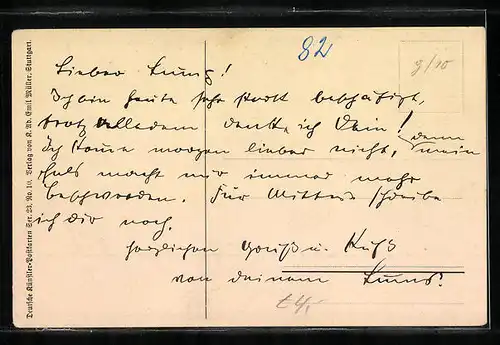 82
9/10
Lieber Kunz!
Ich bin heute sehr stark beschäftigt,
trotz alledem denke ich Dein!
Ich komme morgen lieber nicht, denn mein
Hals macht mir immer mehr
Beschwerden. Für Mittwo schreibe
ich dir noch.
Herzlichen Gruß u. Kuß
von deinem
Deutsche Künstler-Postkarten Ser. 23, No. 10. Verlag von K. Ad. Emil Müller, Stuttgart.